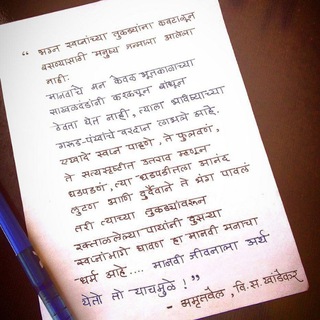 “ भग्न स्वप्नांच्या तुकड्यांना कवटाळून
बसण्यासाठी मनुष्य जन्माला आलेला
नाही.
मानवाचे मन केवळ भूतकाळाच्या
साखळदंडांनी करकचून बांधून
ठेवता येत नाही, त्याला भविष्याच्या
गरूड-पंखांचे वरदान लाभले आहे.
एखादे स्वप्न पाहणे, ते फुलवणं,
ते सत्यसृष्टीत उतरावं म्हणून
धडपडणं, त्या धडपडीतला आनंद
लुटणं आणि दुर्दैवाने ते भंग पावलं
तरी त्याच्या तुकड्यांवरून
रक्ताळलेल्या पायांनी दुसऱ्या
स्वप्नांमागे धावणं हा मानवी मनाचा
धर्म आहे.... मानवी जीवनाला अर्थ
येतो तो याचमुळे ! ”
- अमृतवेल, वि.स.खांडेकर